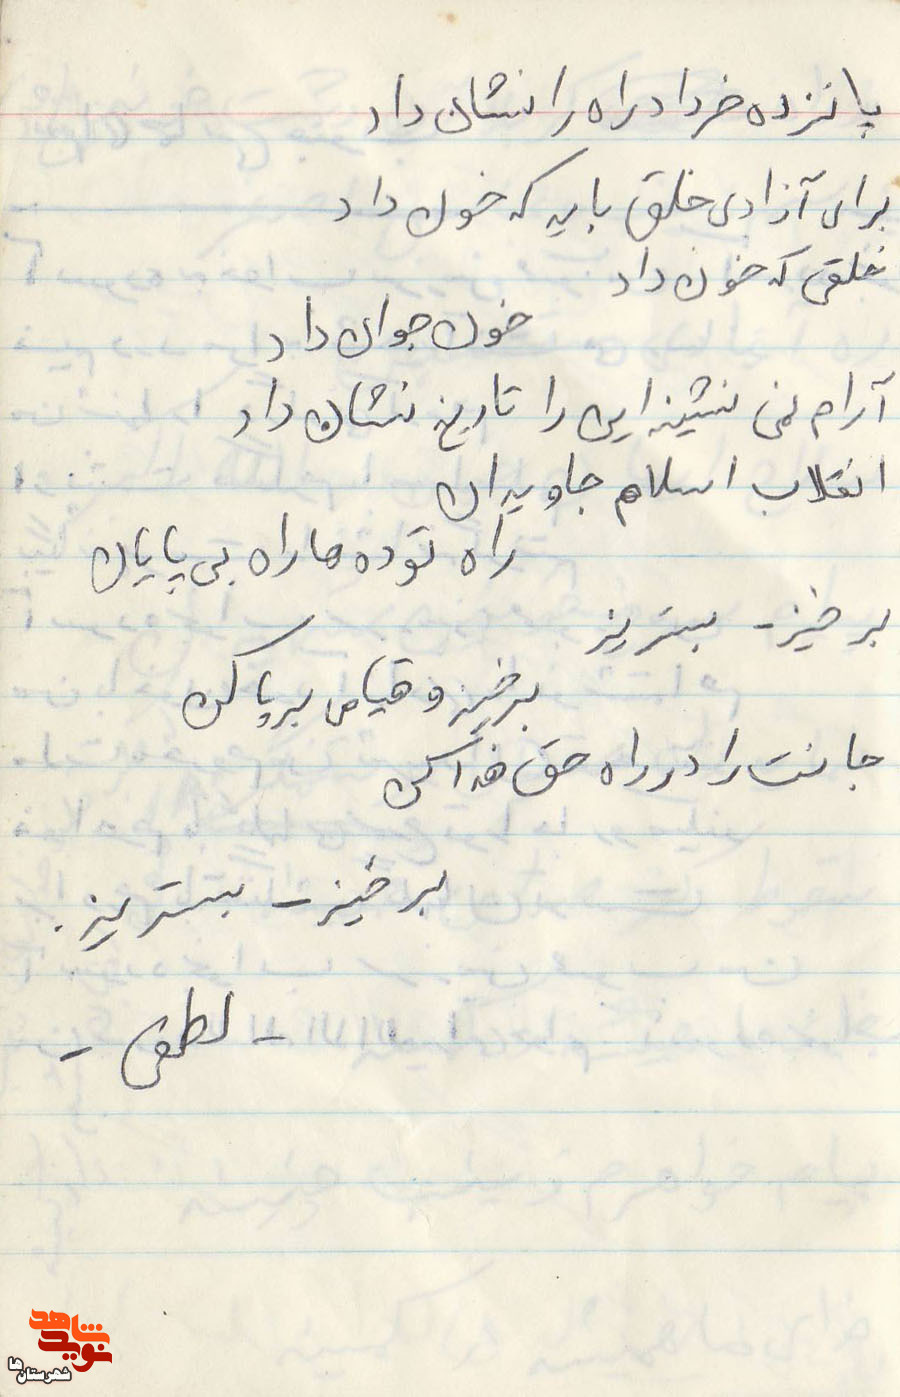 پانزده خرداد راه را نشان داد
برای آزادی خلق باید که خون داد
خلقی که خون داد
خون جوان داد
آرام نمی نشیند این را تاریخ نشان داد
انقلاب اسلام جاویدان
راه توده ها راه بی پایان
برخیز - بستیز
برخیز و قیامی برپا کن
جانت را در راه حق فدا کن
برخیز - بستیز.
- لطفی -
نوید شاهد
شهرستان ها